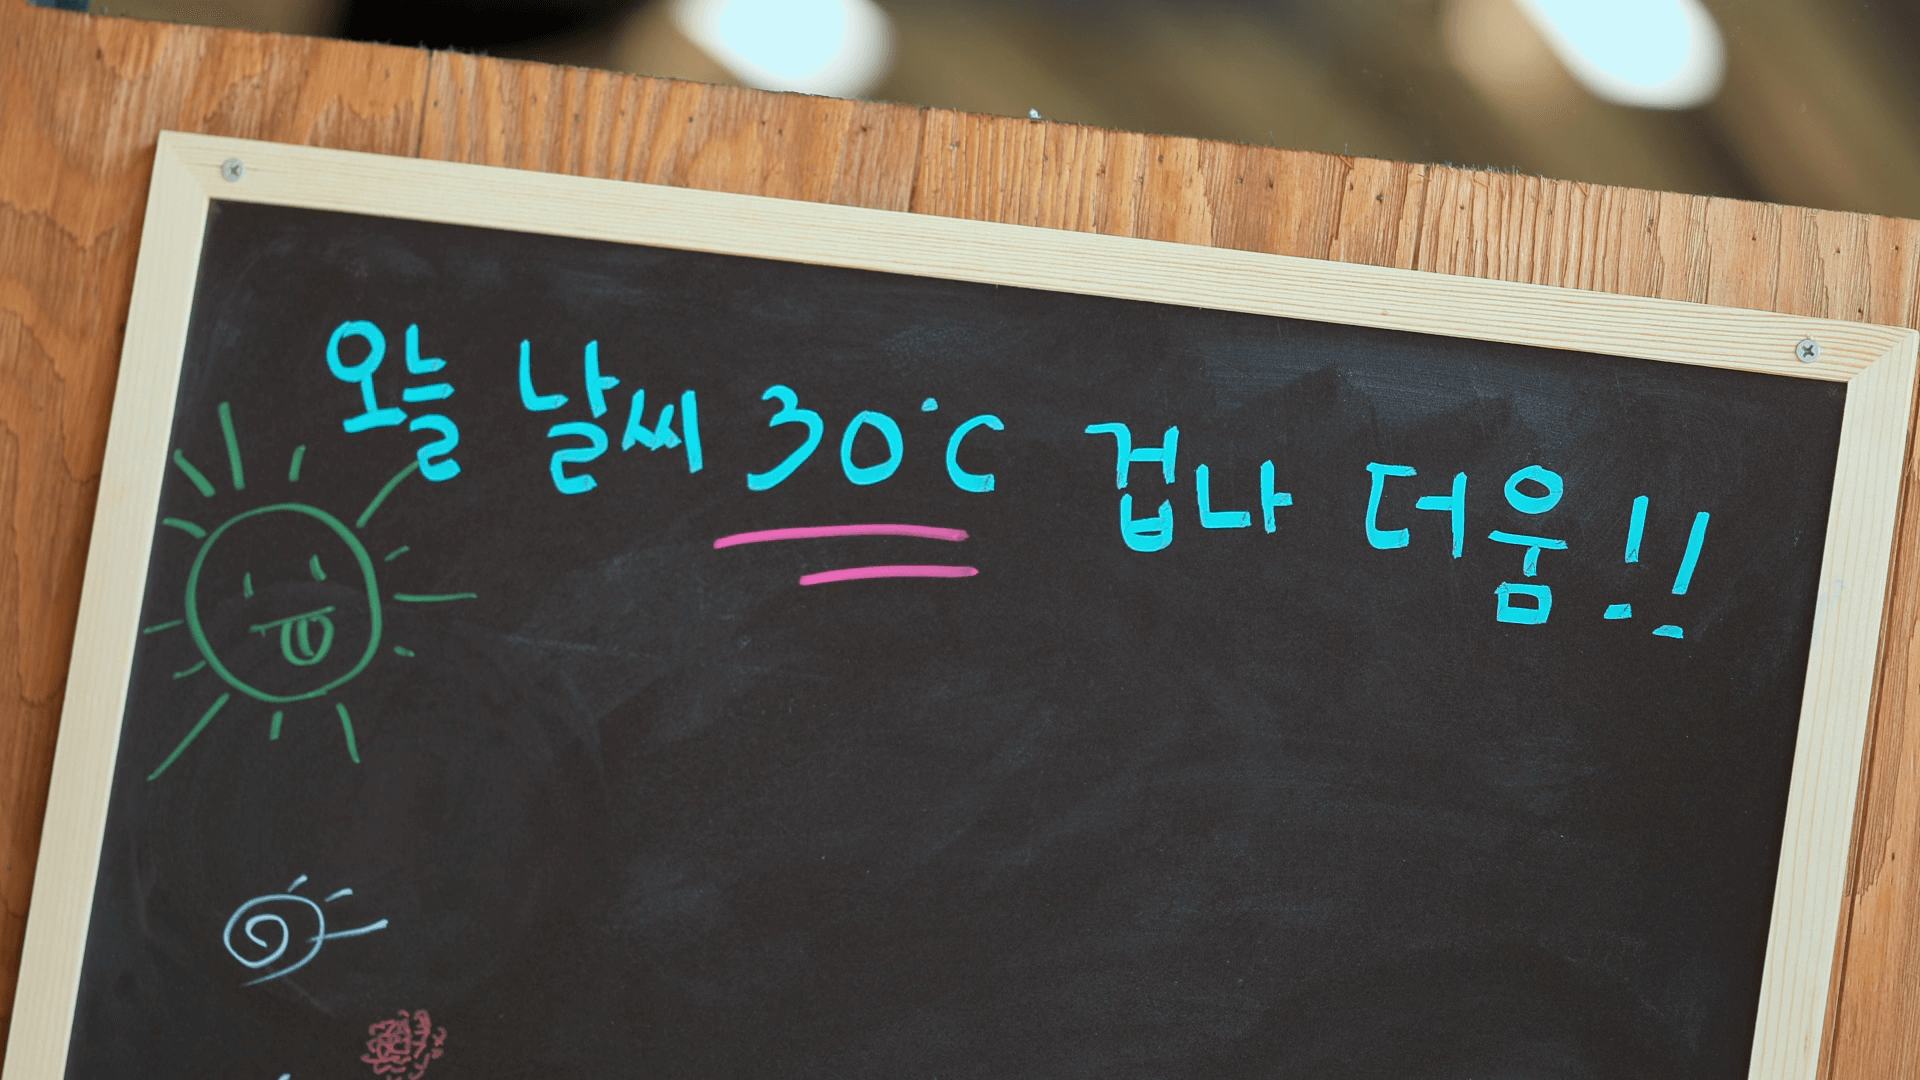 오늘 날씨 30°C 겁나 더움!!